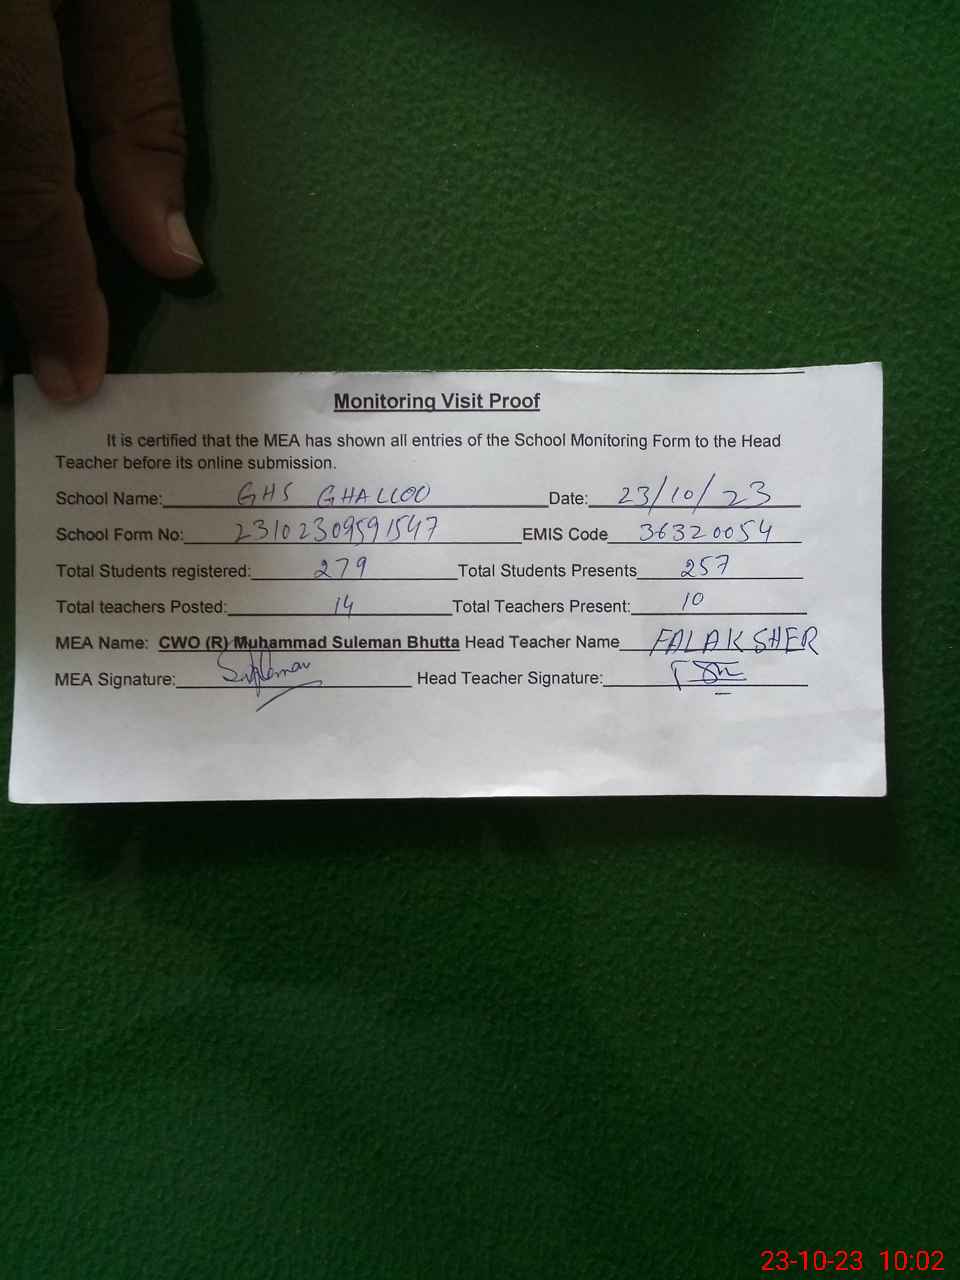 Monitoring Visit Proof
It is certified that the MEA has shown all entries of the School Monitoring Form to the Head
Teacher before its online submission.
School Name: GHS GHALLOO Date: 23/10/23
School Form No: 23102309591547 EMIS Code 36320054
Total Students registered: 279 Total Students Presents 257
Total teachers Posted: 14 Total Teachers Present: 10
MEA Name: CWO (R) Muhammad Suleman Bhutta Head Teacher Name FALAK SHER
MEA Signature: Suleman Head Teacher Signature:
23-10-23 10:02